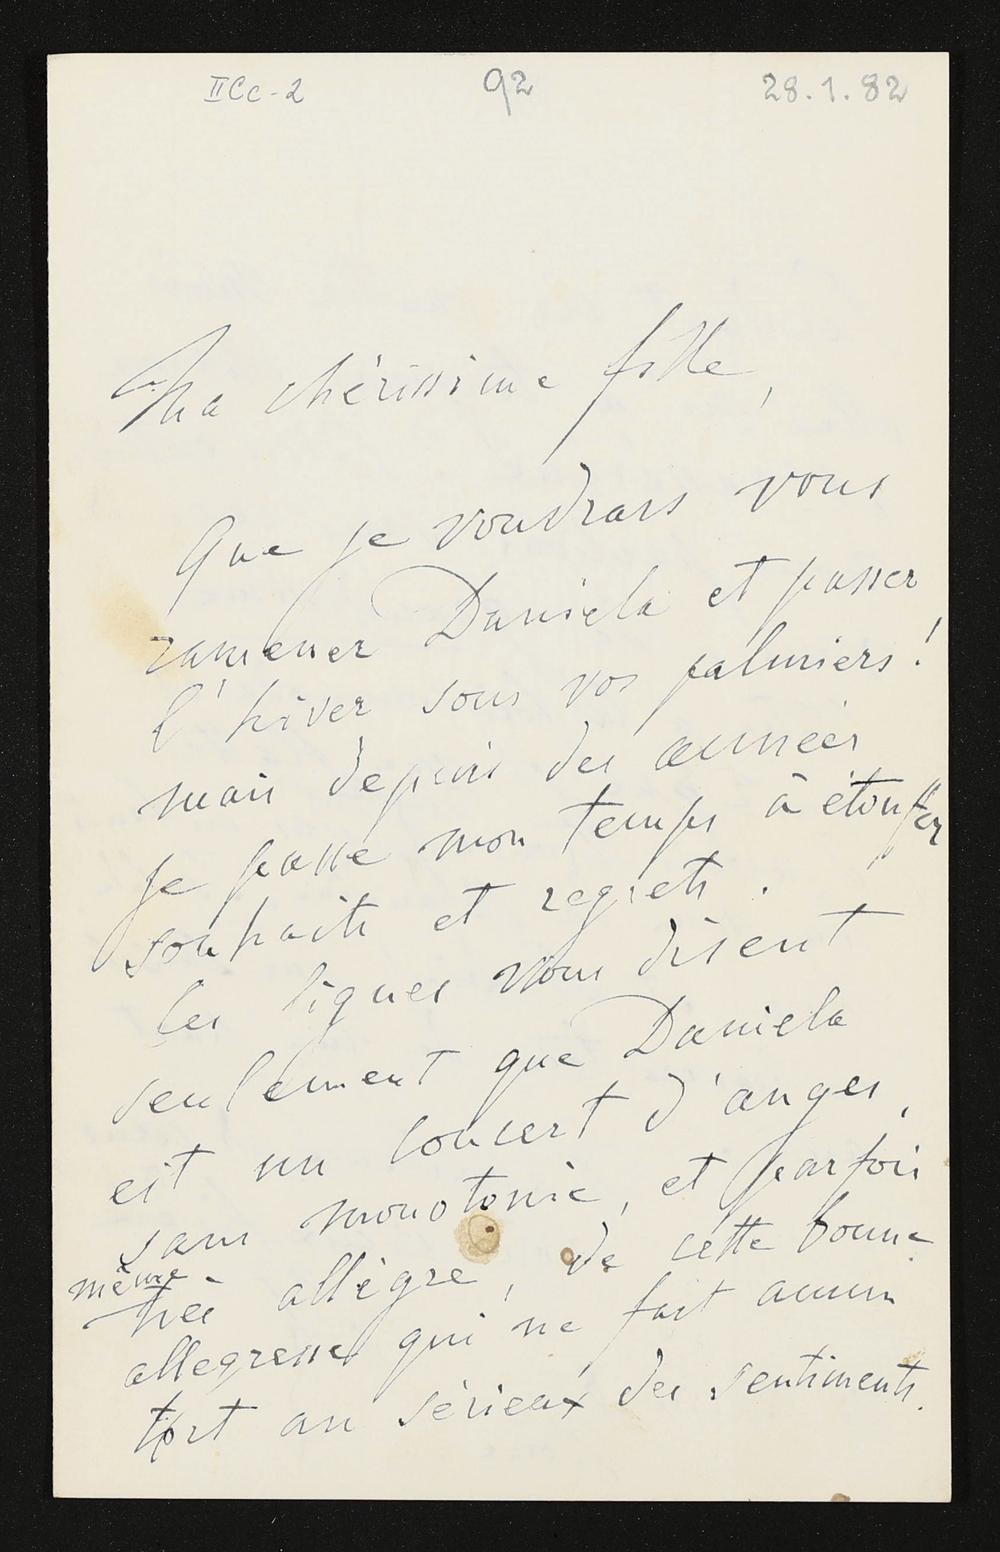 IICc-2 92 28.1.82
Ma chérissime fille,
Que je voudrais vous
ramener Daniela et passer
l'hiver sous vos palmiers!
mais depuis des années
je passe mon temps à étouffer
souhaits et regrets.
Ces lignes vous disent
seulement que Daniela
est un concert d'anges,
sans monotonie, et parfois
même très allègre, de cette bonne
allegresse qui ne fait aucun
tort au sérieux des sentiments.